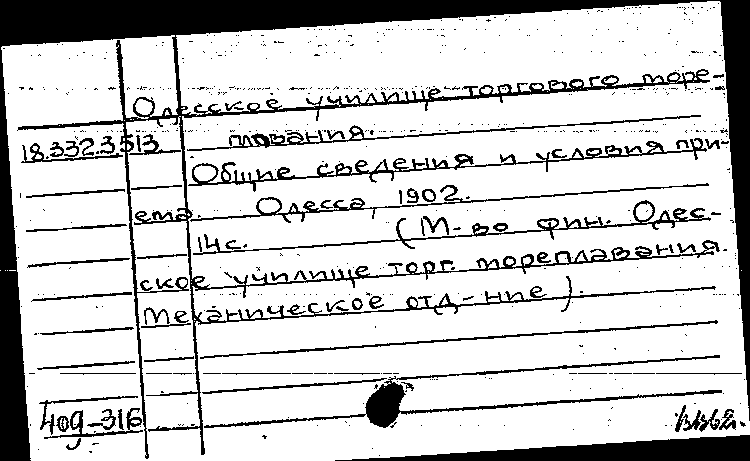 Одесское училище торгового море-
18.332.3.513. плавания.
Общие сведения и условия при-
ема. Одесса, 1902.
14с. (М-во фин. Одес-
ское училище торг. мореплавания.
Механическое отд-ние).
409-316